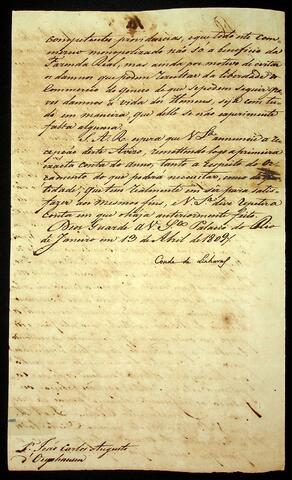 competentes providencias, e que todo este com-
mercio monopolizado não só a beneficio da
Fazenda Real, mas ainda por motivo de evitar
os damnos que podem rezultar da liberdade do
Commercio de genero de que se podem seguir gra-
ves damnos á vida dos Homens, e
de maneira, que delle se não experimente
falta alguma.
S. A. R. espera que V. S.ª annuncie a re-
cepção deste Avizo, remettendo logo a primeira
exacta conta do anno, tanto a respeito do
do que poderá necessitar, como da
tidade, que tem realmente em ser para satis
fazer aos mesmos fins, e V. S.ª
Conta em que o haja anteriormente feito.
Deos Guarde a V. S.ª Palacio do Rio
de Janeiro em 13 de Abril de 1809
Conde de Linhares
S.r João Carlos Augusto
d'Oeynhausen